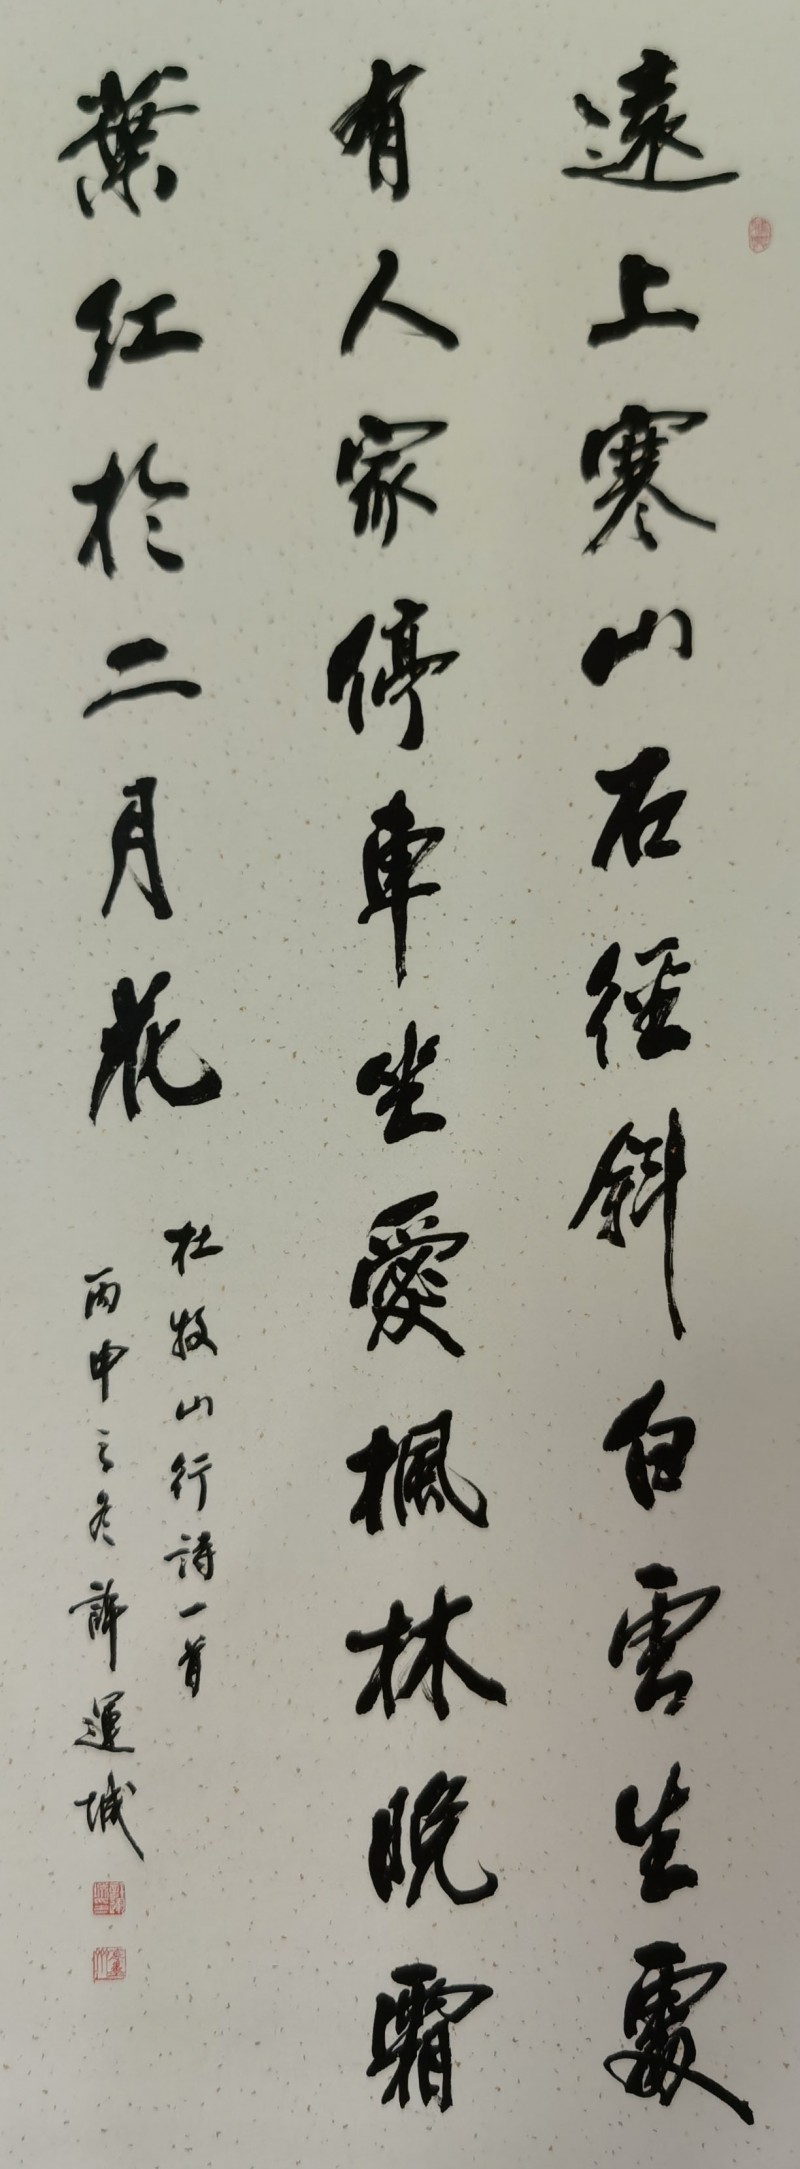 遠上寒山石徑斜白雲生處
有人家停車坐愛楓林晚霜
葉紅於二月花
杜牧山行詩一首
丙申之冬許運城